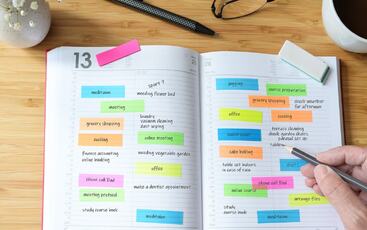 13
meditation
meeting
grocery shopping
cooking
finance accounting
online banking
phone call Dad
meeting protocol
study course book
start 7
weeding flower bed
laundry
vacuum cleaning
dust wiping
online meeting
weeding vegetable garden
office
make a dentist appointment
meditation
jogging
course preparation
grocery shopping
check weather
for afternoon
office
cooking
terrace cleaning
check garden chairs
cake baking
table set indoors
in case of rain
phone call Dad
online course
arrange files
study
course book
meditation